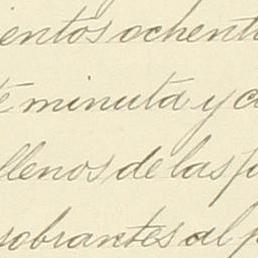 ientos ochent
é minuta y c
llenos de las f
sobrantes al p